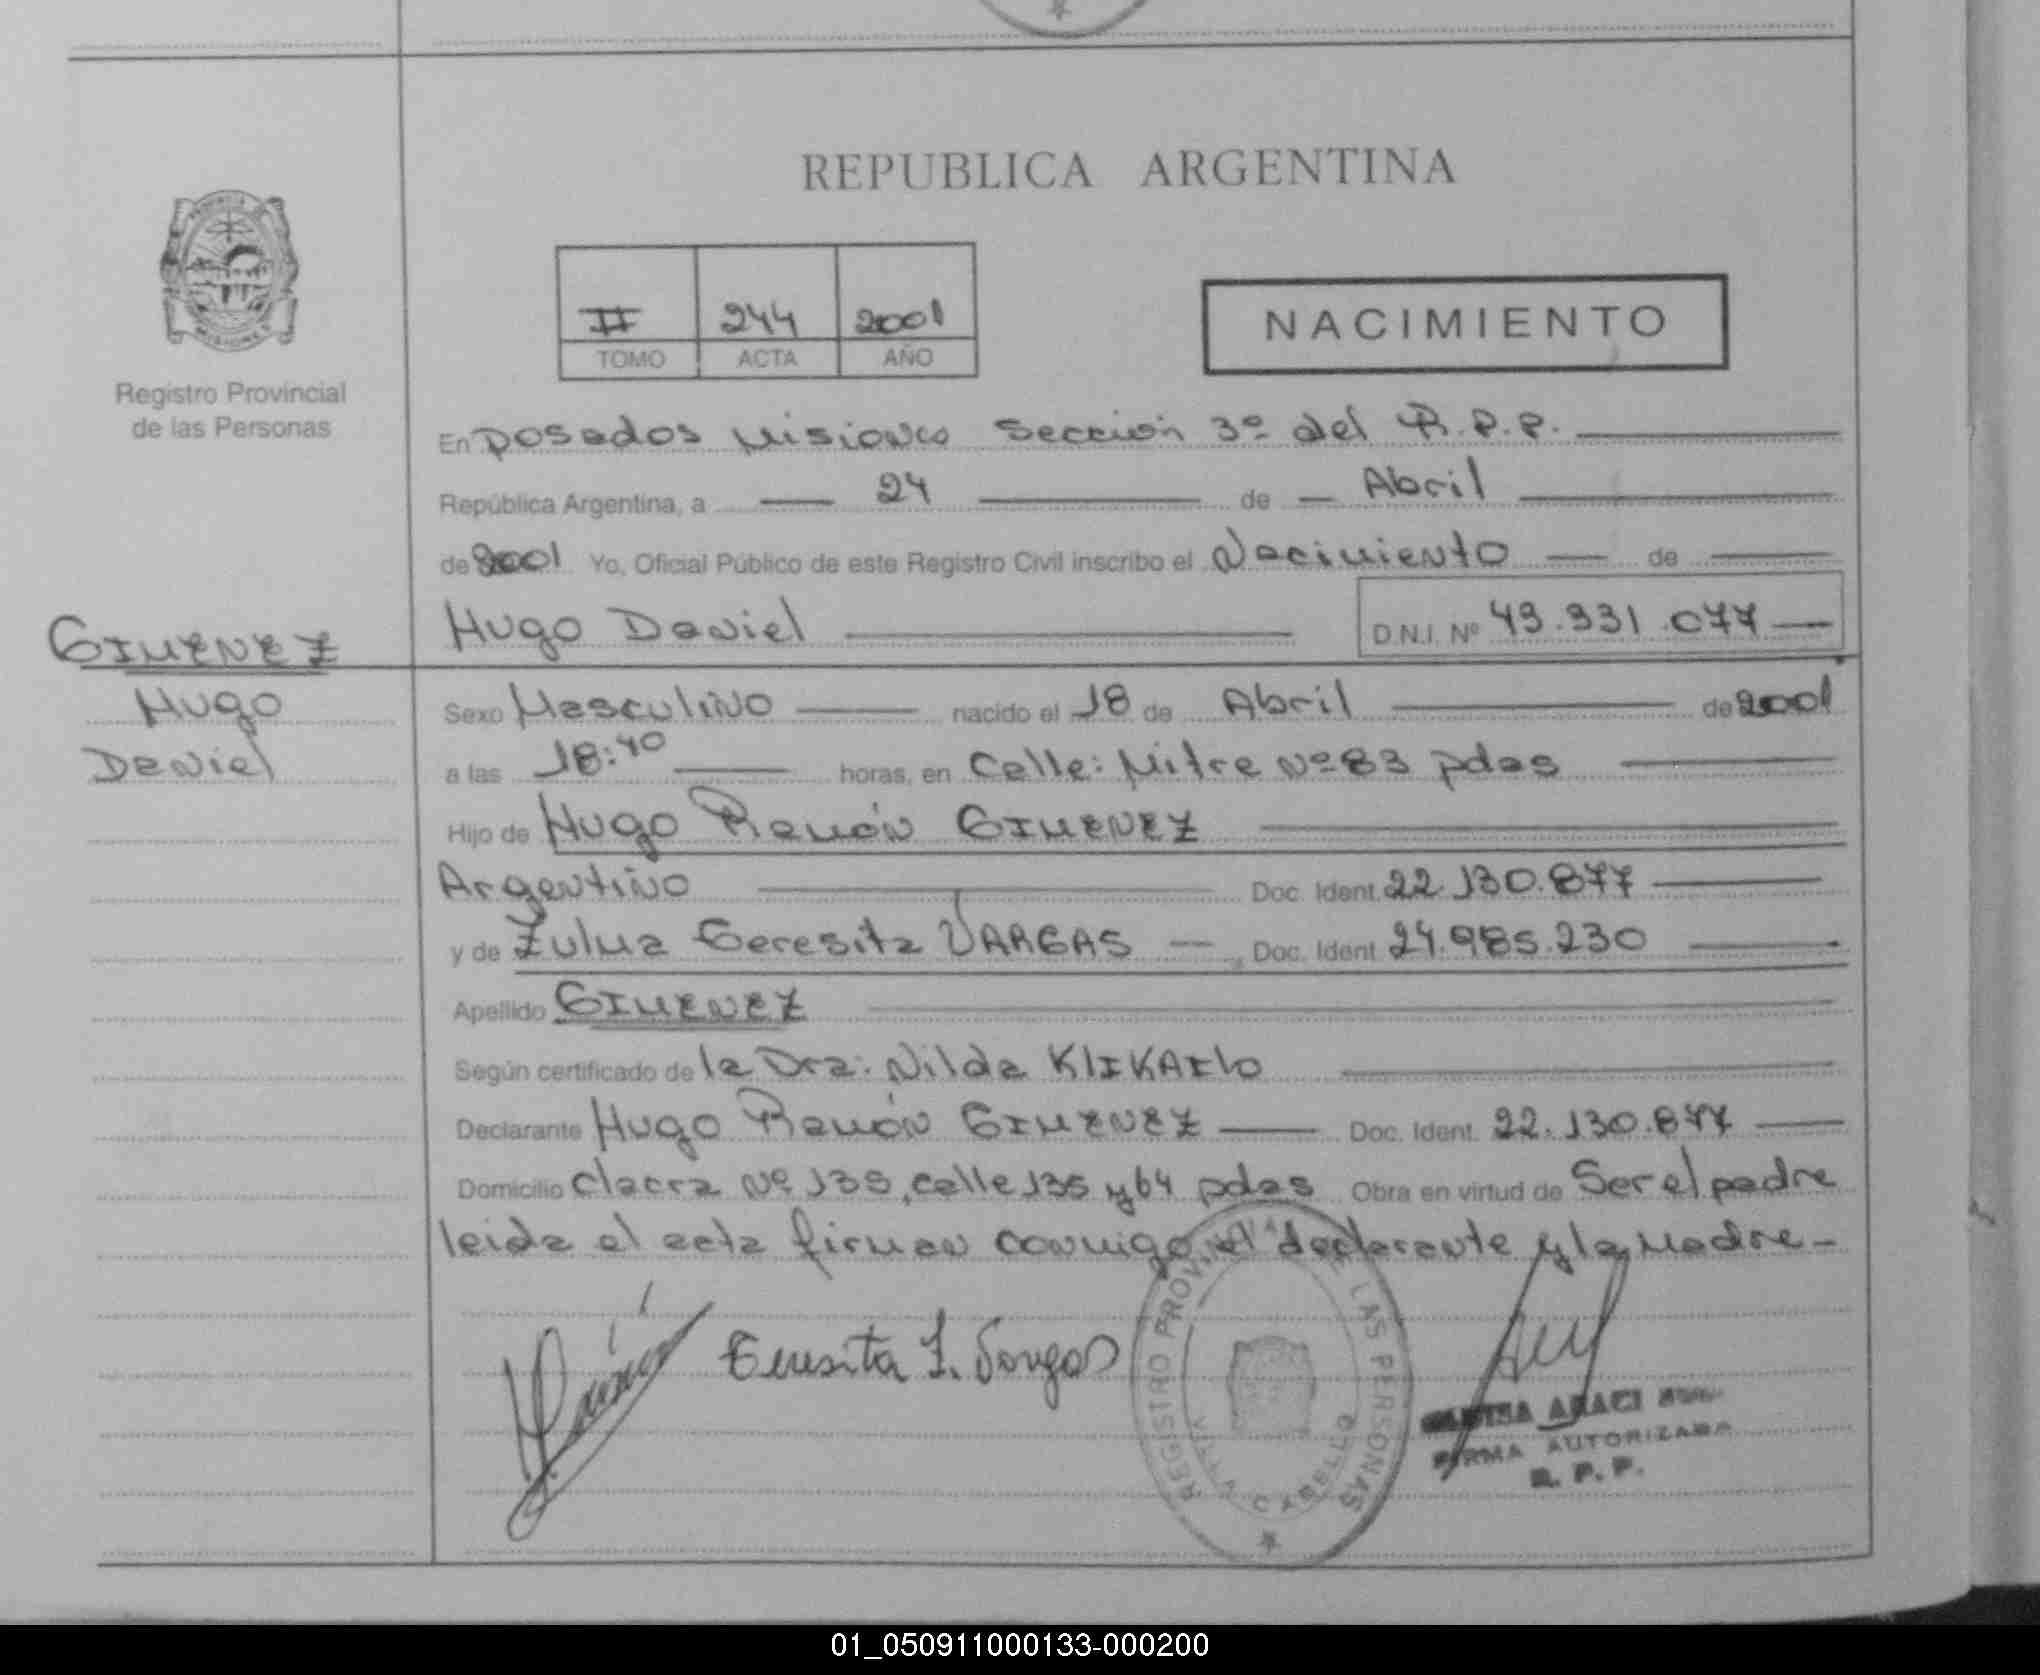 REPUBLICA ARGENTINA
PROVINCIA DE
MISIONES
Registro Provincial
de las Personas
II 244 2001
TOMO ACTA AÑO
NACIMIENTO
En Posadas Misiones Sección 3º del R.P.P.
República Argentina, a 24 de Abril
de 2001 Yo, Oficial Público de este Registro Civil inscribo el Nacimiento de
Hugo Daniel D.N.I. Nº 43.331.077
GIMENEZ
Hugo
Daniel
Sexo Masculino nacido el 18 de Abril de 2001
a las 18:40 horas, en Calle: Mitre Nº 83 pdas
Hijo de Hugo Ramón GIMENEZ
Argentino Doc. Ident. 22.130.877
y de Zulma Teresita VARGAS Doc. Ident. 24.985.230
Apellido GIMENEZ
Según certificado de la Dra: Nilda KlIKAIlo
Declarante Hugo Ramón GIMENEZ Doc. Ident. 22.130.877
Domicilio chacra Nº 135, calle 135 y 64 pdas Obra en virtud de Ser el padre
leida el acta firman conmigo el declarante y la Madre -
Teresita Z. Vargas
REGISTRO PROVINCIAL DE LAS PERSONAS
VILLA CABELLO
ARACI
FIRMA AUTORIZADA
R. P. P.
01_050911000133-000200